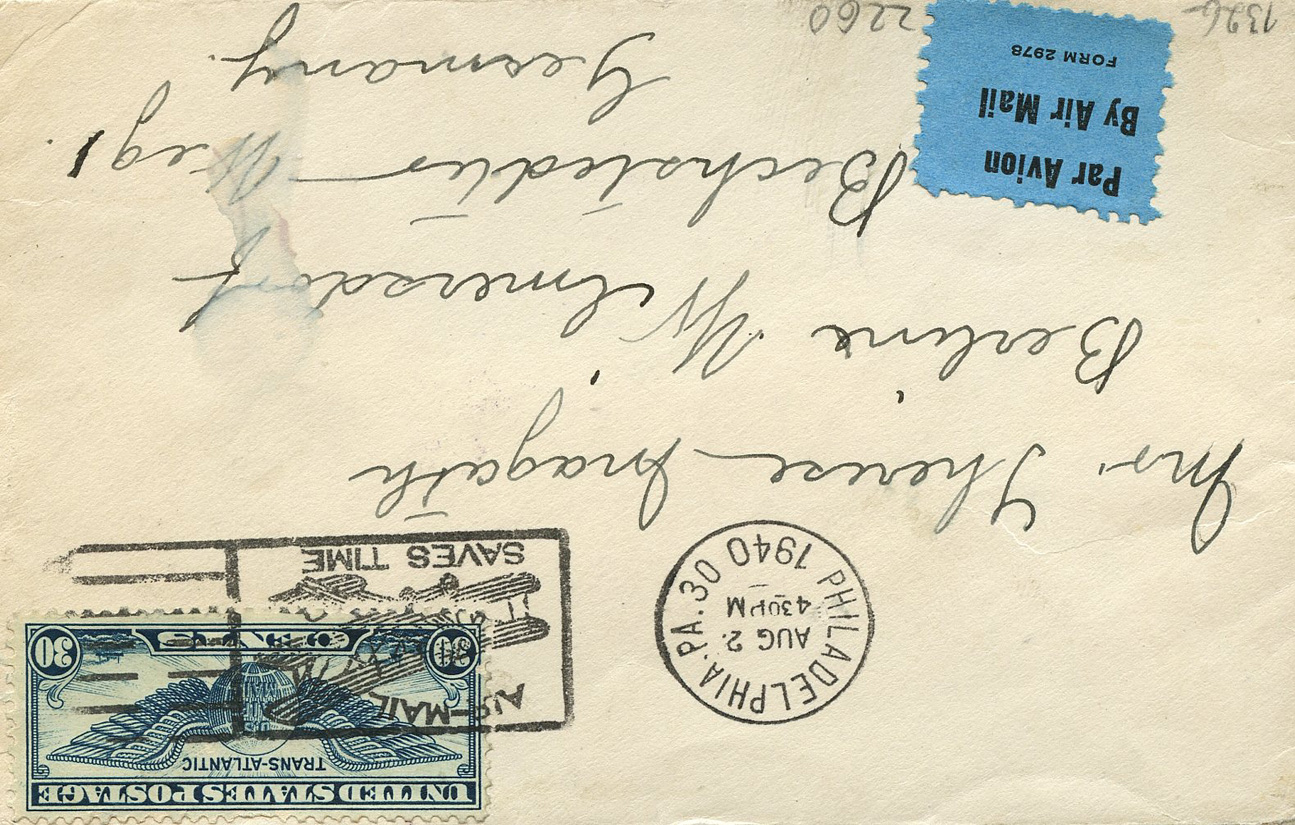 UNITED STATES POSTAGE
TRANS-ATLANTIC
U.S.
MAIL
30 CENTS 30
AIR-MAIL
SAVES TIME
PHILADELPHIA, PA. 30
AUG 2
430 PM
1940
Mrs. Therese Magath
Berlin Wilmersdorf
Bechstedter Weg 1
Germany.
Par Avion
By Air Mail
FORM 2978
2260
1326